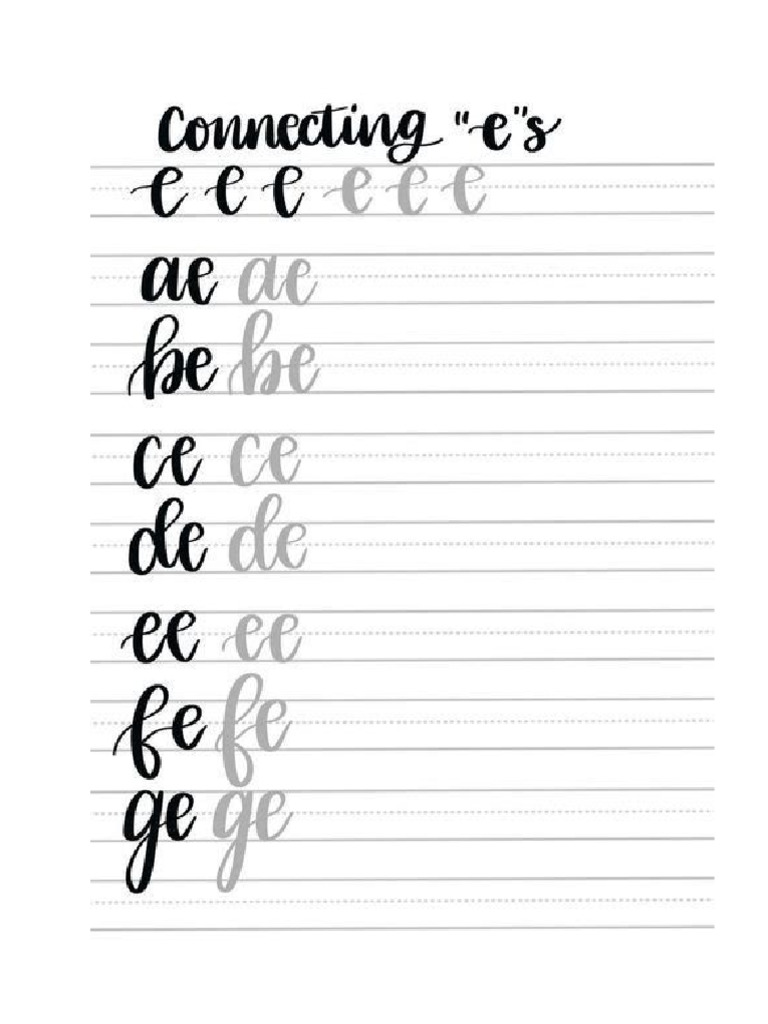 Connecting "e"s
e e e e e e
ae ae
be be
ce ce
de de
ee ee
fe fe
ge ge